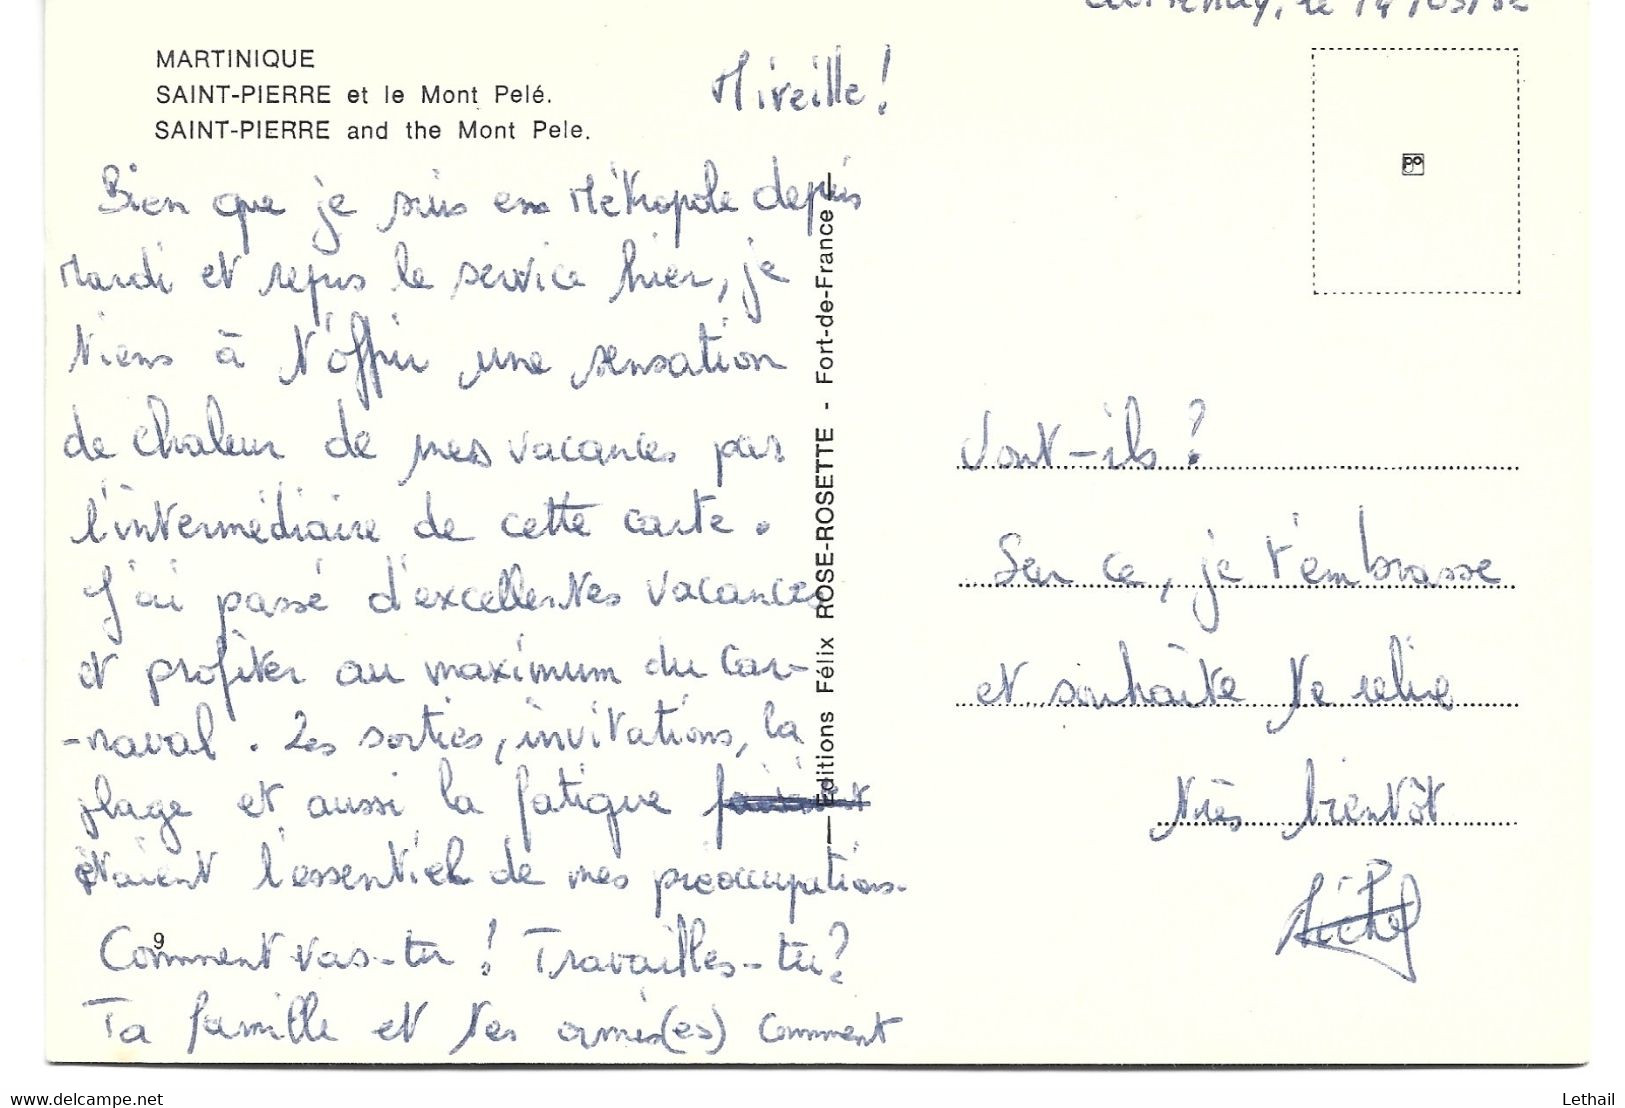 le 14/03/82
MARTINIQUE
SAINT-PIERRE et le Mont Pelé.
SAINT-PIERRE and the Mont Pele.
Mireille !
Bien que je suis en Métropole depuis
Mardi et repris le service hier, je
tiens à t'offrir une sensation
de chaleur de mes vacances par
l'intermédiaire de cette carte.
J'ai passé d'excellentes vacances
et profiter au maximum du Car-
-naval. Les sorties, invitations, la
plage et aussi la fatigue
étaient l'essentiel de mes préoccupations.
Comment vas-tu ! Travailles-tu ?
Ta famille et tes amis(es) comment
9
Editions Félix ROSE-ROSETTE - Fort-de-France
sont-ils ?
Sur ce, je t'embrasse
et souhaite te relire
très bientôt
Michel
www.delcampe.net
Lethail